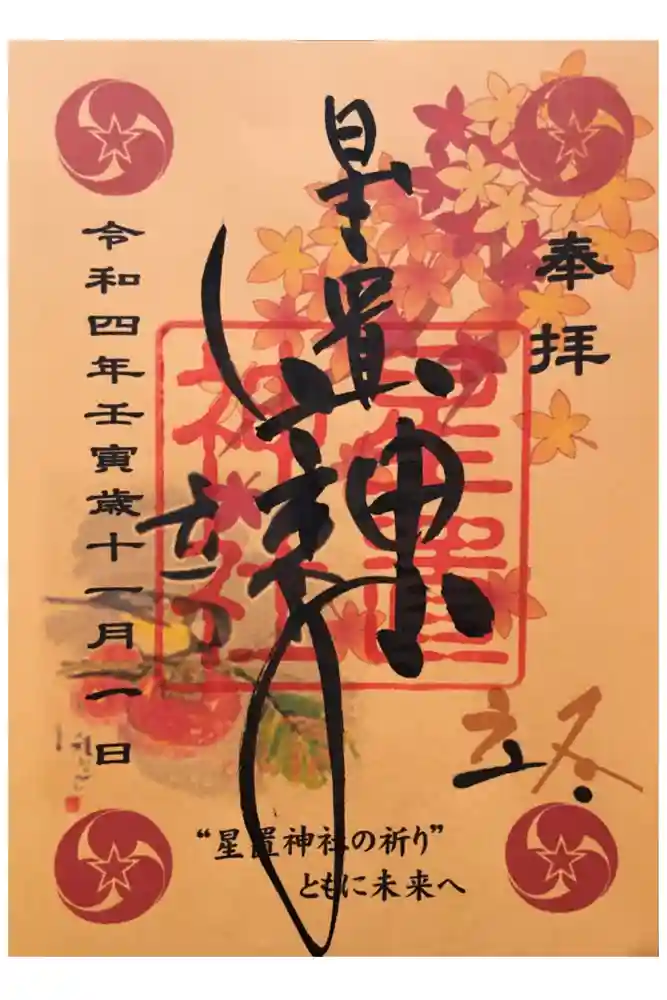 奉拝
星置神社
星置神社
立冬
令和四年壬寅歳十一月一日
“星置神社の祈り”
ともに未来へ